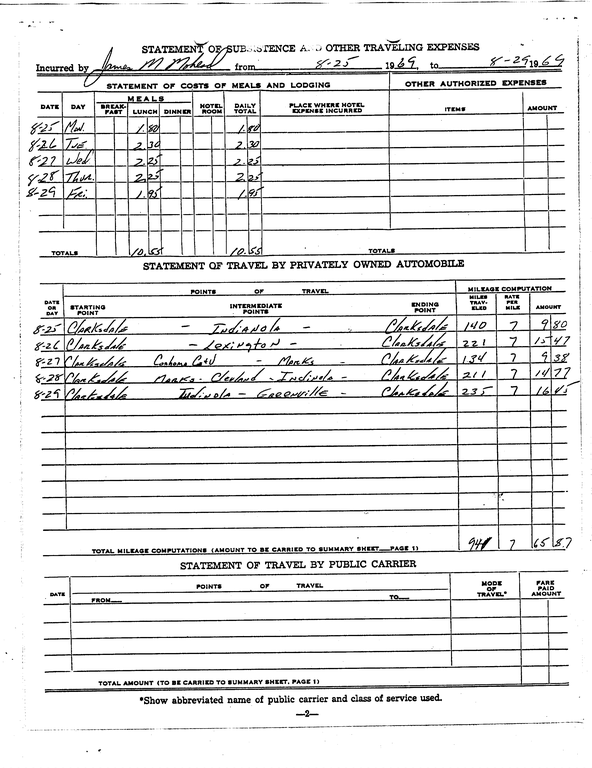 STATEMENT OF SUBSISTENCE AND OTHER TRAVELING EXPENSES
Incurred by James M Mohead from 8-25 1969 to 8-29 1969
STATEMENT OF COSTS OF MEALS AND LODGING OTHER AUTHORIZED EXPENSES
DATE DAY MEALS BREAK-FAST LUNCH DINNER HOTEL ROOM DAILY TOTAL PLACE WHERE HOTEL EXPENSE INCURRED ITEMS AMOUNT
8-25 Mon. 1.80 1.80
8-26 Tue 2.30 2.30
8-27 Wed 2.25 2.25
8-28 Thur. 2.25 2.25
8-29 Fri. 1.95 1.95
TOTALS 10.55 10.55 TOTALS
STATEMENT OF TRAVEL BY PRIVATELY OWNED AUTOMOBILE
POINTS OF TRAVEL MILEAGE COMPUTATION
DATE OR DAY STARTING POINT INTERMEDIATE POINTS ENDING POINT MILES TRAV-ELED RATE PER MILE AMOUNT
8-25 Clarksdale - Indianola - Clarksdale 140 7 9 80
8-26 Clarksdale - Lexington - Clarksdale 221 7 15 47
8-27 Clarksdale - Marks - Clarksdale 134 7 9 38
8-28 Clarksdale Marks - Cleveland - Indianola - Clarksdale 211 7 14 77
8-29 Clarksdale Indianola - Greenville - Clarksdale 235 7 16 45
TOTAL MILEAGE COMPUTATIONS (AMOUNT TO BE CARRIED TO SUMMARY SHEET—PAGE 1) 941 7 65 87
STATEMENT OF TRAVEL BY PUBLIC CARRIER
DATE POINTS OF TRAVEL MODE OF TRAVEL* FARE PAID AMOUNT
FROM— TO—
TOTAL AMOUNT (TO BE CARRIED TO SUMMARY SHEET, PAGE 1)
*Show abbreviated name of public carrier and class of service used.
—2—